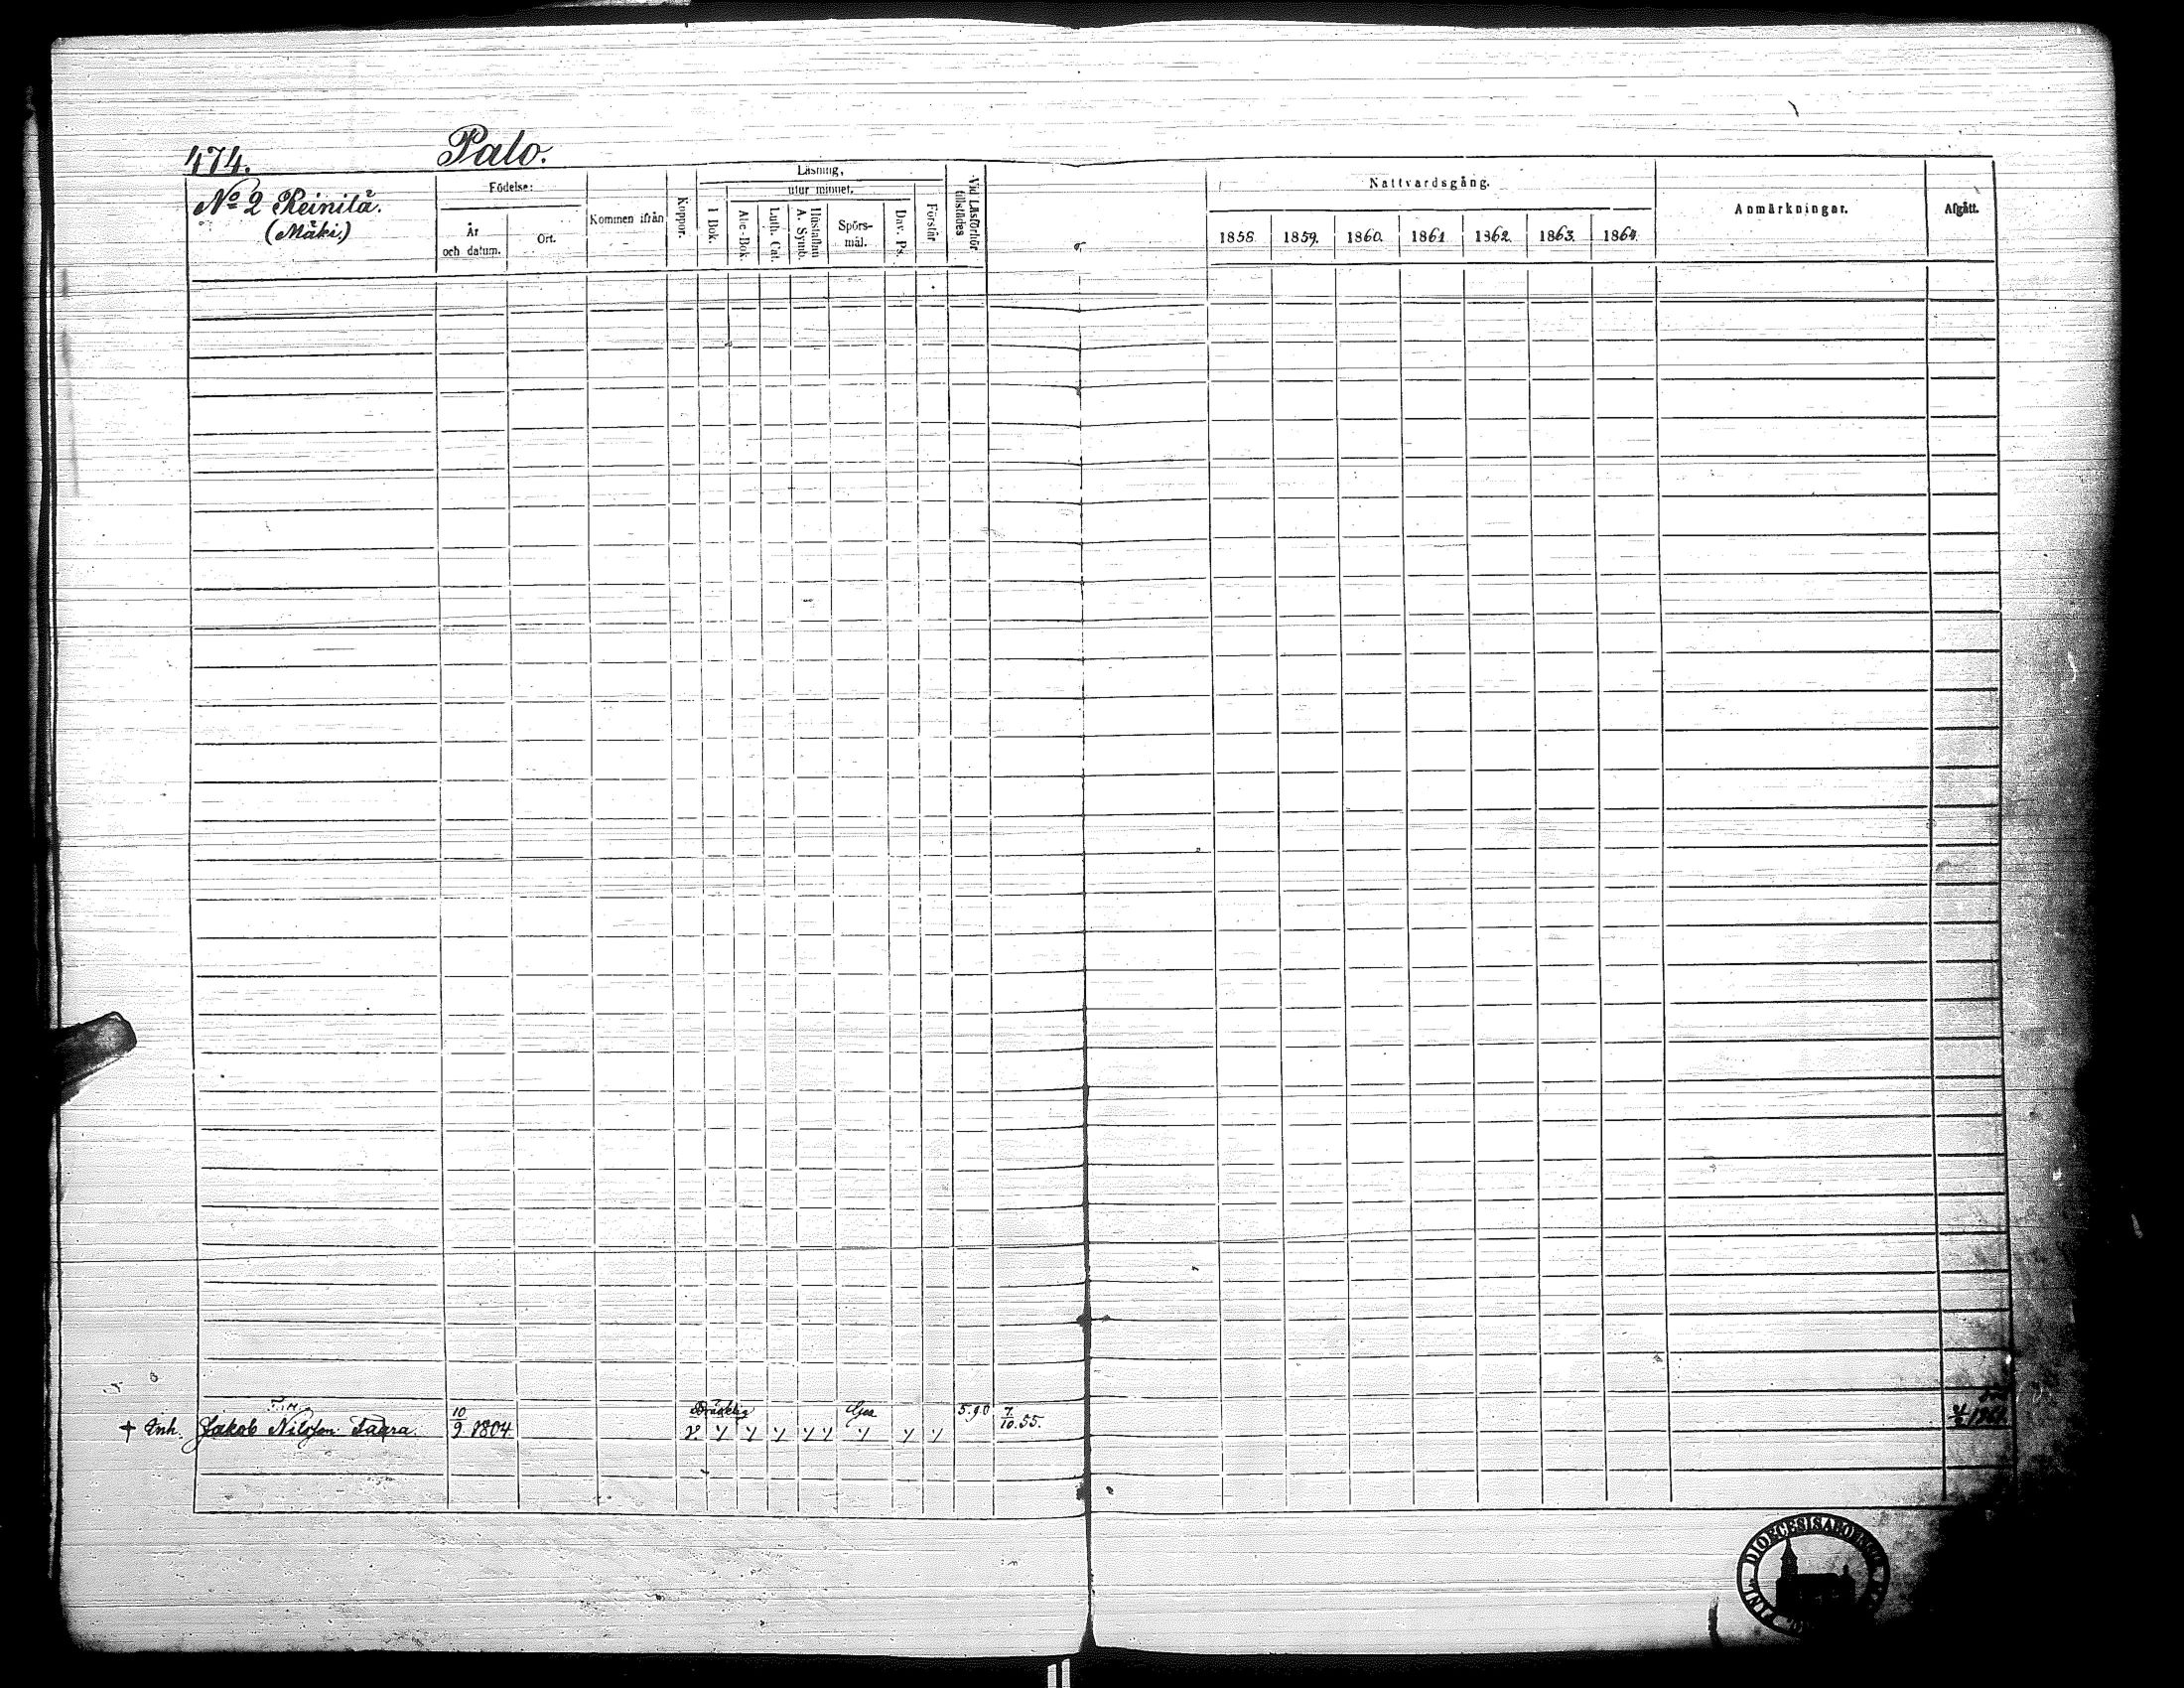 474.
Palo.
No 2 Reinilä.
(Mäki)
Födelse:
År
och datum.
Ort.
Kommen ifrån
Koppor.
Läsning,
utur minnet.
I Bok.
Abc-Bok.
Luth. Cat.
Hustaflan
A. Symb.
Spörs-
mål.
Dav. Ps.
Förstår
Vid Läsförhör
tillstädes
Nattvardsgång.
1858. 1859. 1860. 1861 1862. 1863. 1864.
Anmärkningar.
Afgått.
† Inh. Jakob Nilsson Taara. 10/9 1804
5.9.0 7/10.55.
DIOECESIS ABOENSIS